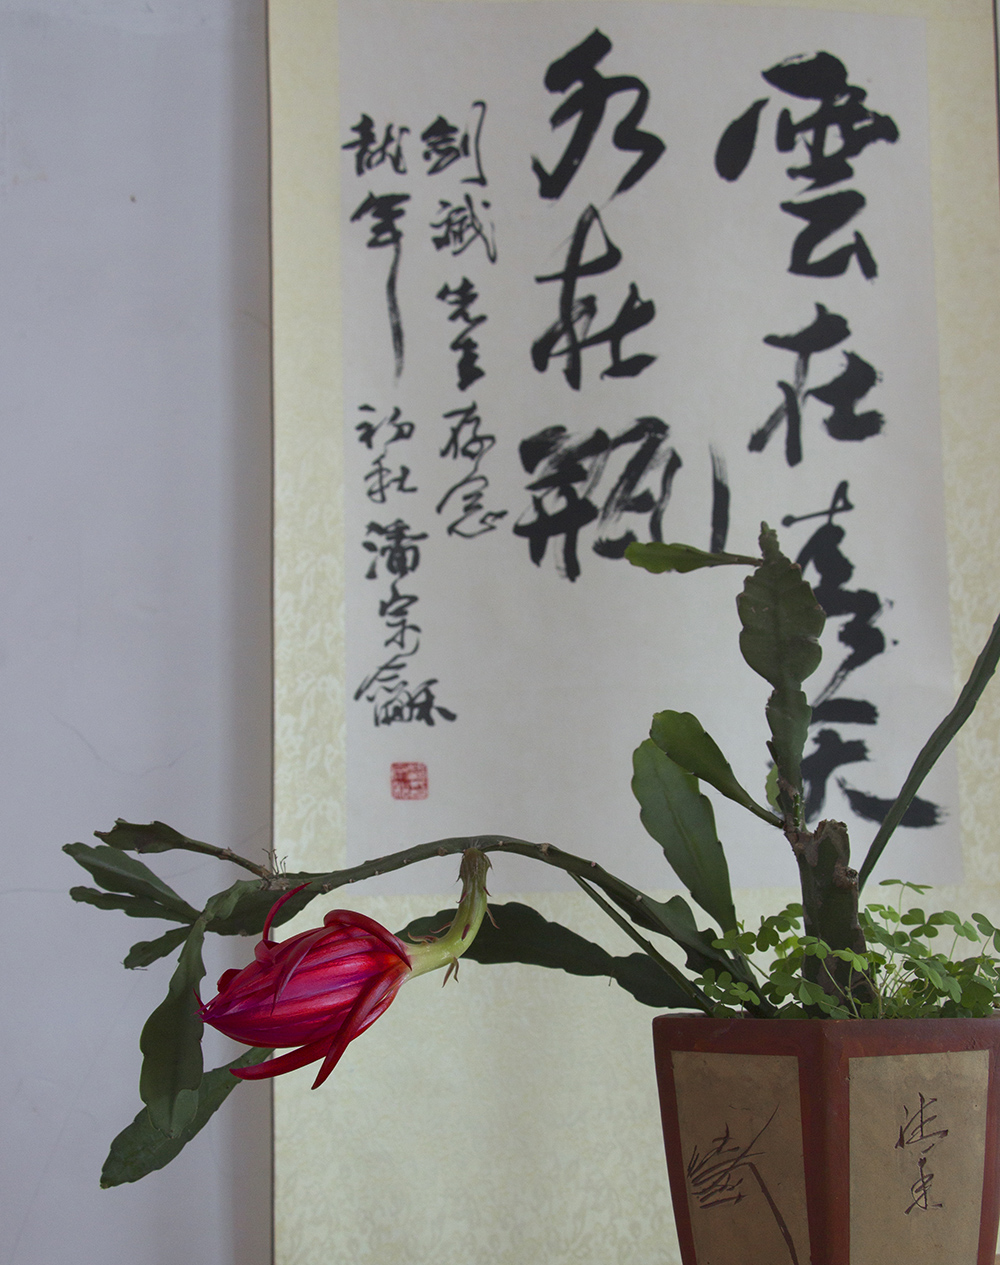 雲在青天
水在瓶
劍誠先生存念
龍年初秋潘宗龢